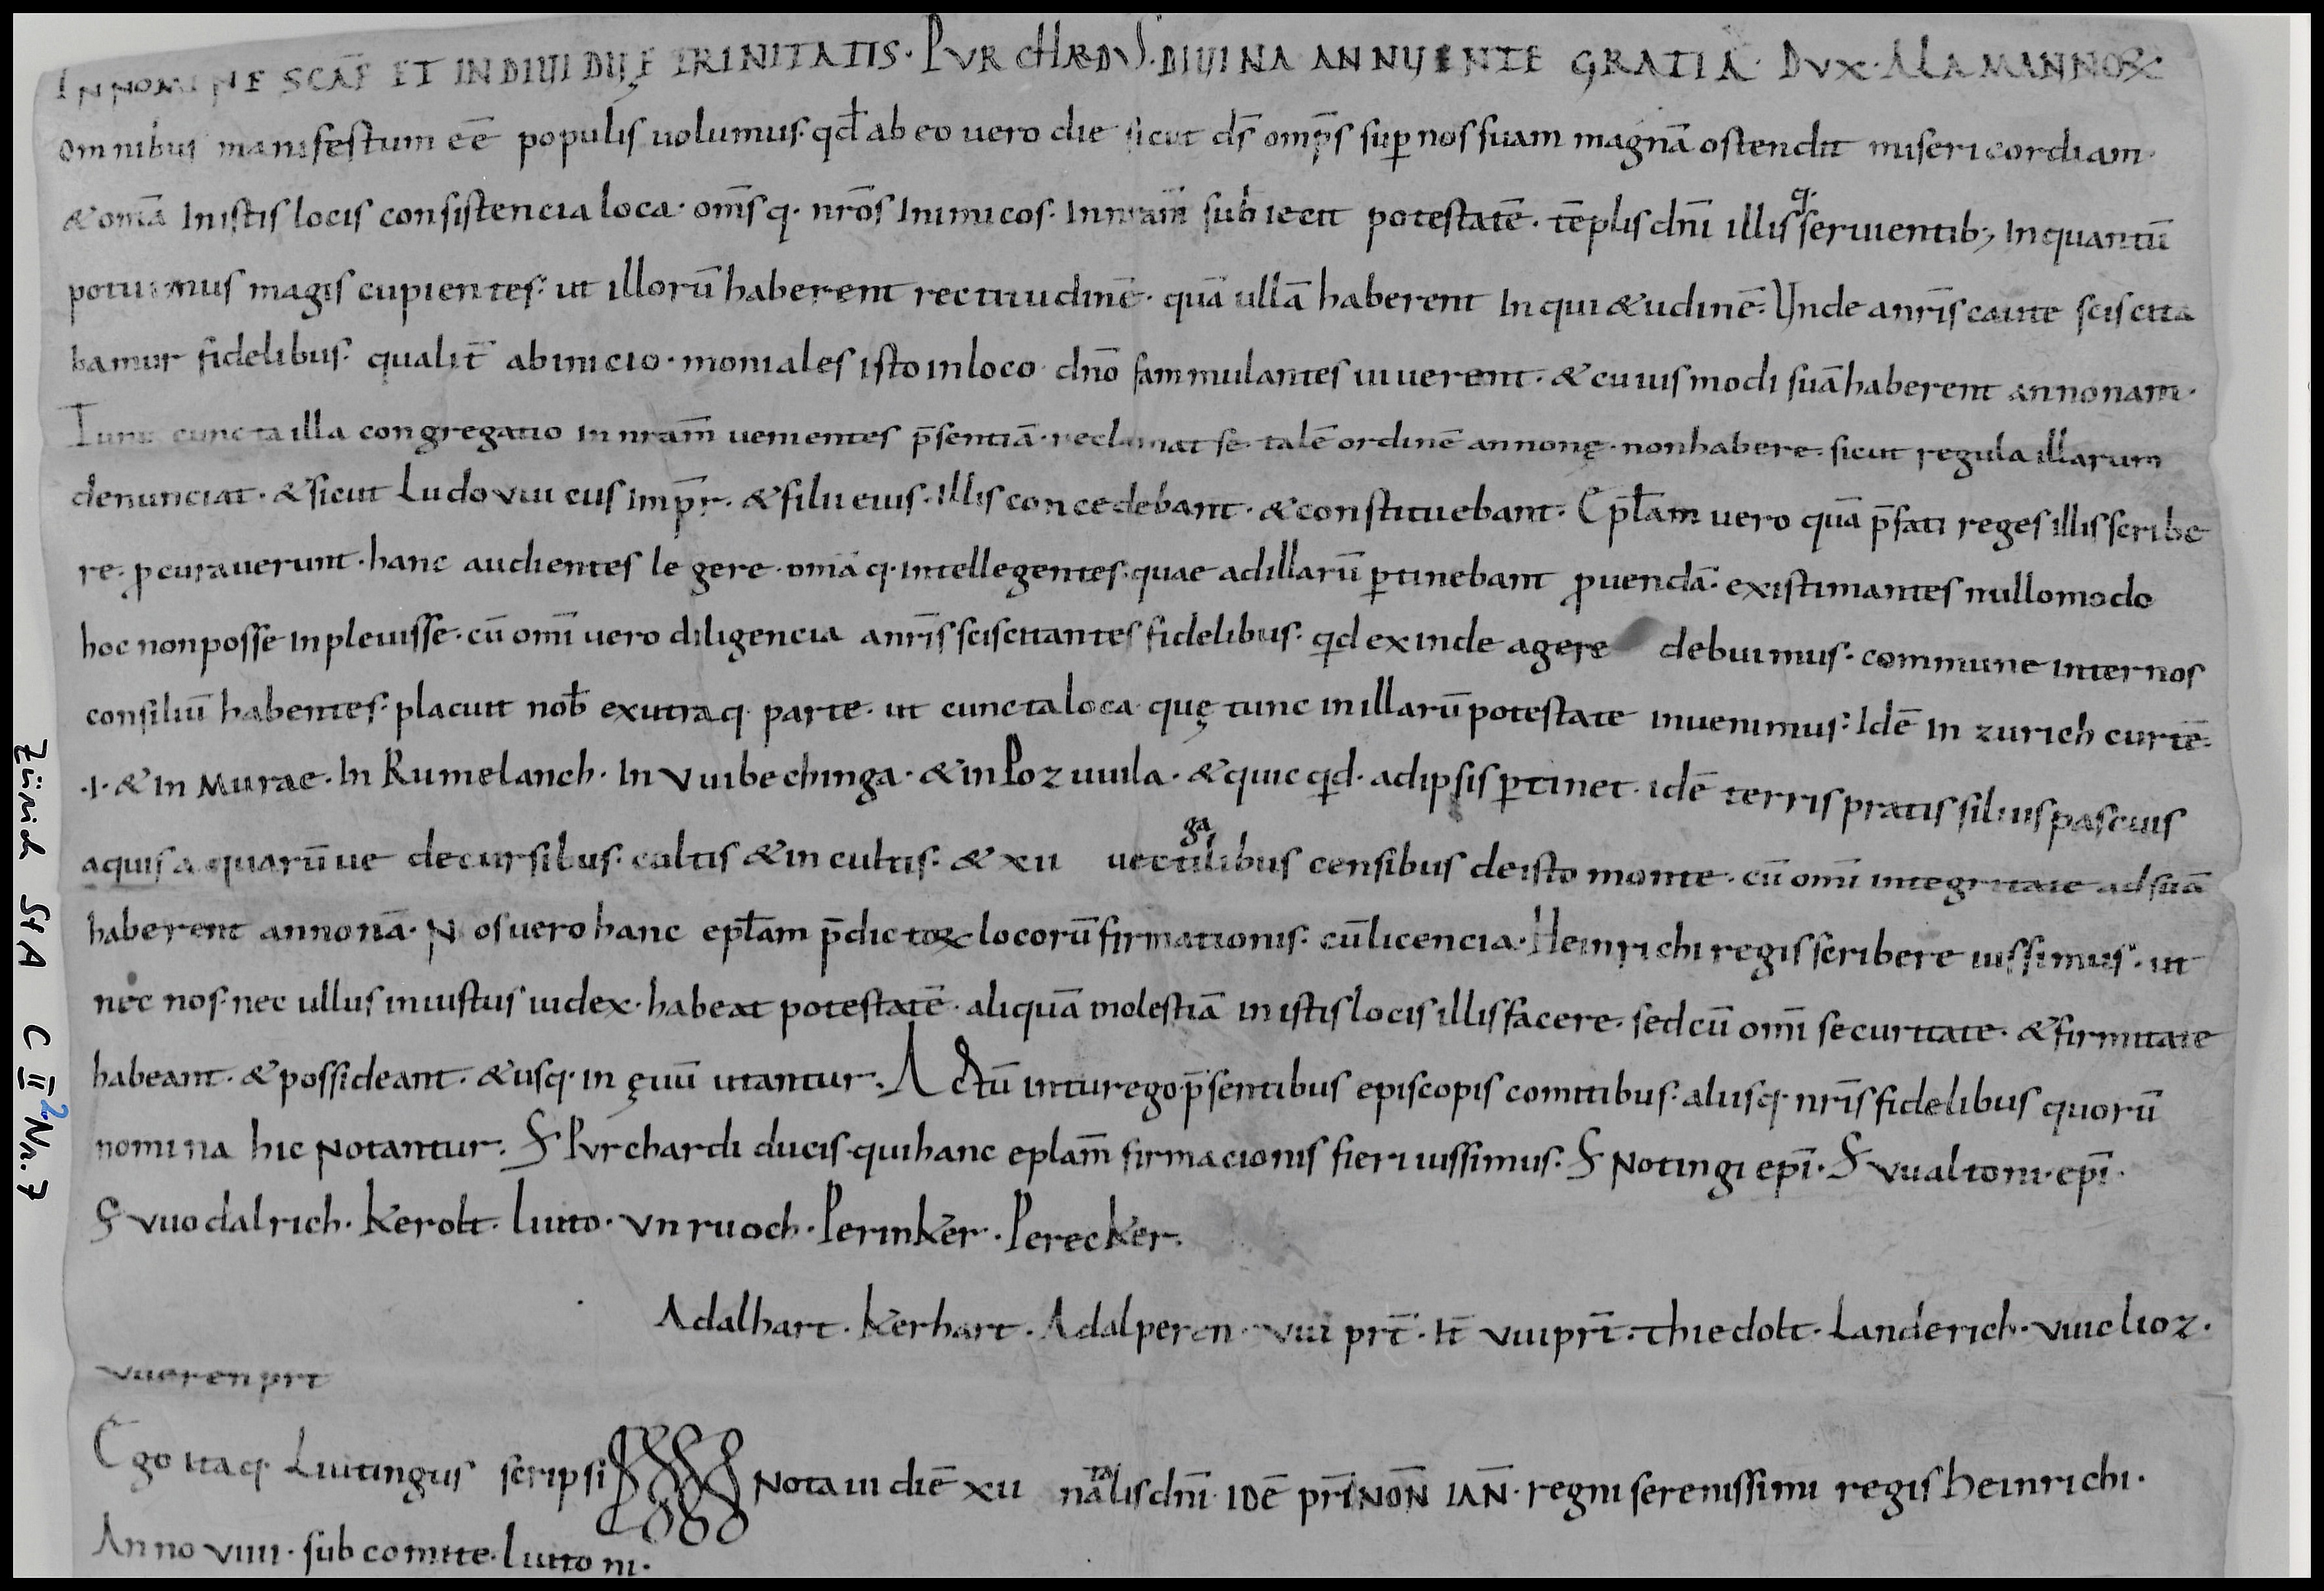 IN NOMINE SCAE ET INDIVIDUĘ TRINITATIS· PURCHARDUS· DIVINA ANNUENTE GRATIA· DUX· ALAMANNOꝜ
omnibus manifestum eē populis uolumus· qđ ab eo uero die sicut dī omp̄s sup nos suam magnā ostendit misericordiam·
& om̄a In istis locis consistencia loca· om̄sq· nr̄os Inimicos· In nram̄ subiecit potestatē· tēplis dn̄i illisq· seruientib; In quantū
potuimus magis cupientes· ut illorū haberent rectitudinē· quā ullā haberent Inqui&udinē· Unde a nr̄is caute sciscita
bamur fidelibus· qualit̄ ab inicio· moniales isto in loco dn̄o fammulantes uiuerent· & cuiusmodi suā haberent annonam·
Tunc cuncta illa congregatio in nram̄ uenientes p̄sentiā· reclamat se talē ordinē annonę· non habere· sicut regula illarum
denunciat· & sicut Ludouuicus imp̄r· & filii eius· illis concedebant· & constituebant· Ep̄tam uero quā p̄fati reges illis scribe
re· ꝓcurauerunt· hanc audientes legere· om̄aq· intellegentes· quae ad illarū ꝑtinebant ꝓuendā· existimantes nullomodo
hoc non posse inpleuisse· cū om̄i uero diligencia a nr̄is sciscitantes fidelibus· qđ exinde agere debuimus· commune inter nos
consiliū habentes· placuit nob̄ ex utraq· parte· ut cuncta loca quę tunc in illarū potestate inuenimus· Idē In zurich curtē·
·I· & In Murae· In Rumelanch· In Vuibechinga· & in Pozuuila· & quicqđ· ad ipsis ꝑtinet· idē terris pratis siluis pascuis
aquis aquarūue decursibus· cultis & incultis· & xii uectigalibus censibus de isto monte· cū om̄i integritate ad suā
haberent annonā· Nos uero hanc eptam̄ p̄dictoꝝ locorū firmationis· cū licencia· Heinrichi regis scribere iussimus· ut
nec nos· nec ullus iniustus iudex· habeat potestatē· aliquā molestiā in istis locis illis facere· sed cū om̄i securitate· & firmitate
habeant· & possideant· & usq· in ęuū utantur· Actū in turego p̄sentibus episcopis comitibus· aliisq· nr̄is fidelibus quorū
nomina hic Notantur· S Purchardi ducis· qui hanc eplam̄ firmacionis fieri iussimus· S Notingi ep̄i· S Vualtoni· ep̄i·
S Vuodalrich· Kerolt· Liuto· Vnruoch· Perinker· Perecker·
Adalhart· Kerhart· Adalperen· Vuiprt̄· It̄ Vuiprt̄· Thiedolt· Landerich· Vuiclioz·
Vuerenprt
Ego itaq· Liutingus scripsi Notaui diē xii natalis dn̄i· IDĒ pri NON̄ IAN̄· regni serenissimi regis heinrichi·
Anno viiii· sub comite· Liutoni·
Zürich StA C II 2 Nr. 7